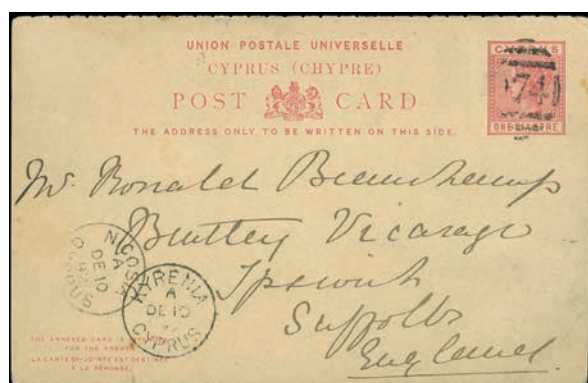 UNION POSTALE UNIVERSELLE
CYPRUS (CHYPRE)
POST CARD
THE ADDRESS ONLY TO BE WRITTEN ON THIS SIDE.
CYPRUS
974
ONE PIASTRE
Mr. Ronald Beauchamp
Bentley Vicarage
Ipswich
Suffolk
England
NICOSIA
A
DE 10
CYPRUS
KYRENIA
A
DE 10
CYPRUS
THE ANNEXED CARD IS INTENDED
FOR THE ANSWER
LA CARTE CI-JOINTE EST DESTINÉE
À LA RÉPONSE.